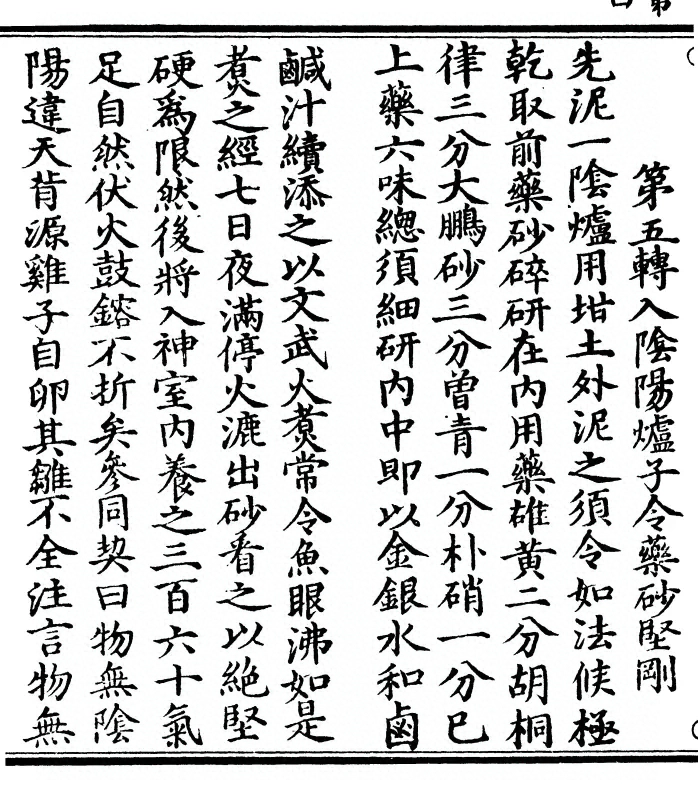 第五轉入陰陽爐子令藥砂堅剛
先泥一陰爐用坩土外泥之須令如法候極
乾取前藥砂碎研在內用藥雄黃二分胡桐
律三分大鵬砂三分曾青一分朴硝一分巳
上藥六味總須細研內中即以金銀水和鹵
鹹汁續添之以文武火煑常令魚眼沸如是
煑之經七日夜滿停火漉出砂看之以絕堅
硬爲限然後將入神室內養之三百六十氣
足自然伏火鼓鎔不折矣參同契曰物無陰
陽違天背源雞子自卵其雛不全注言物無